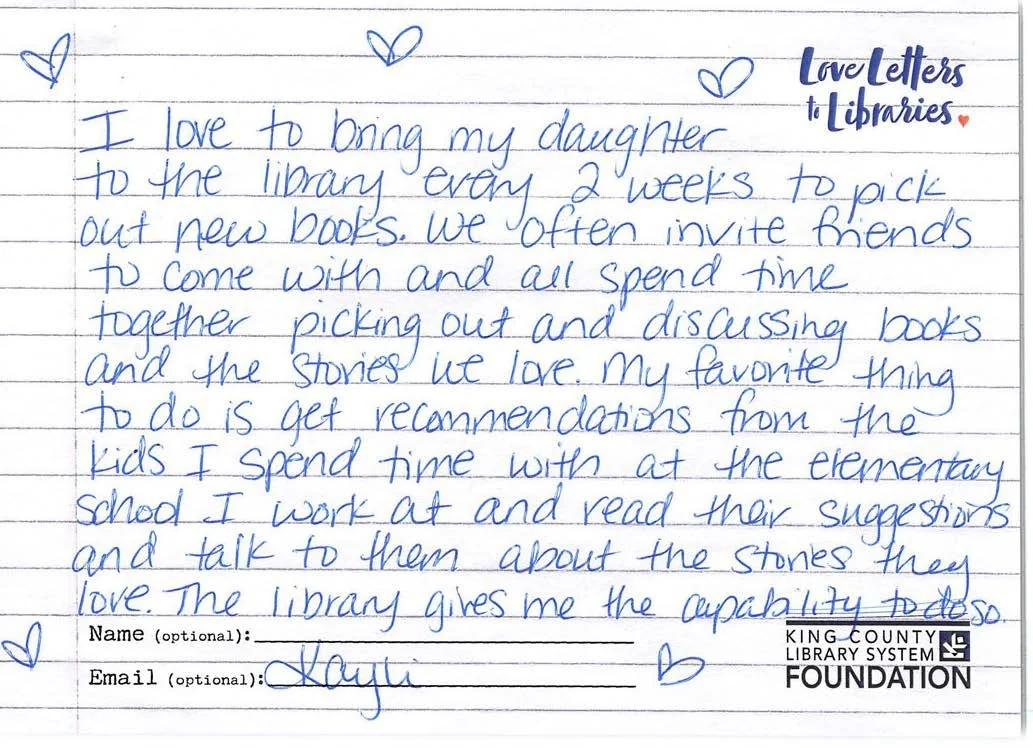 Love Letters
to Libraries
I love to bring my daughter
to the library every 2 weeks to pick
out new books. We often invite friends
to come with and all spend time
together picking out and discussing books
and the stories we love. My favorite thing
to do is get recommendations from the
kids I spend time with at the elementary
school I work at and read their suggestions
and talk to them about the stories they
love. The library gives me the capability to do so.
Name (optional):
Email (optional): Kayli
KING COUNTY
LIBRARY SYSTEM
FOUNDATION